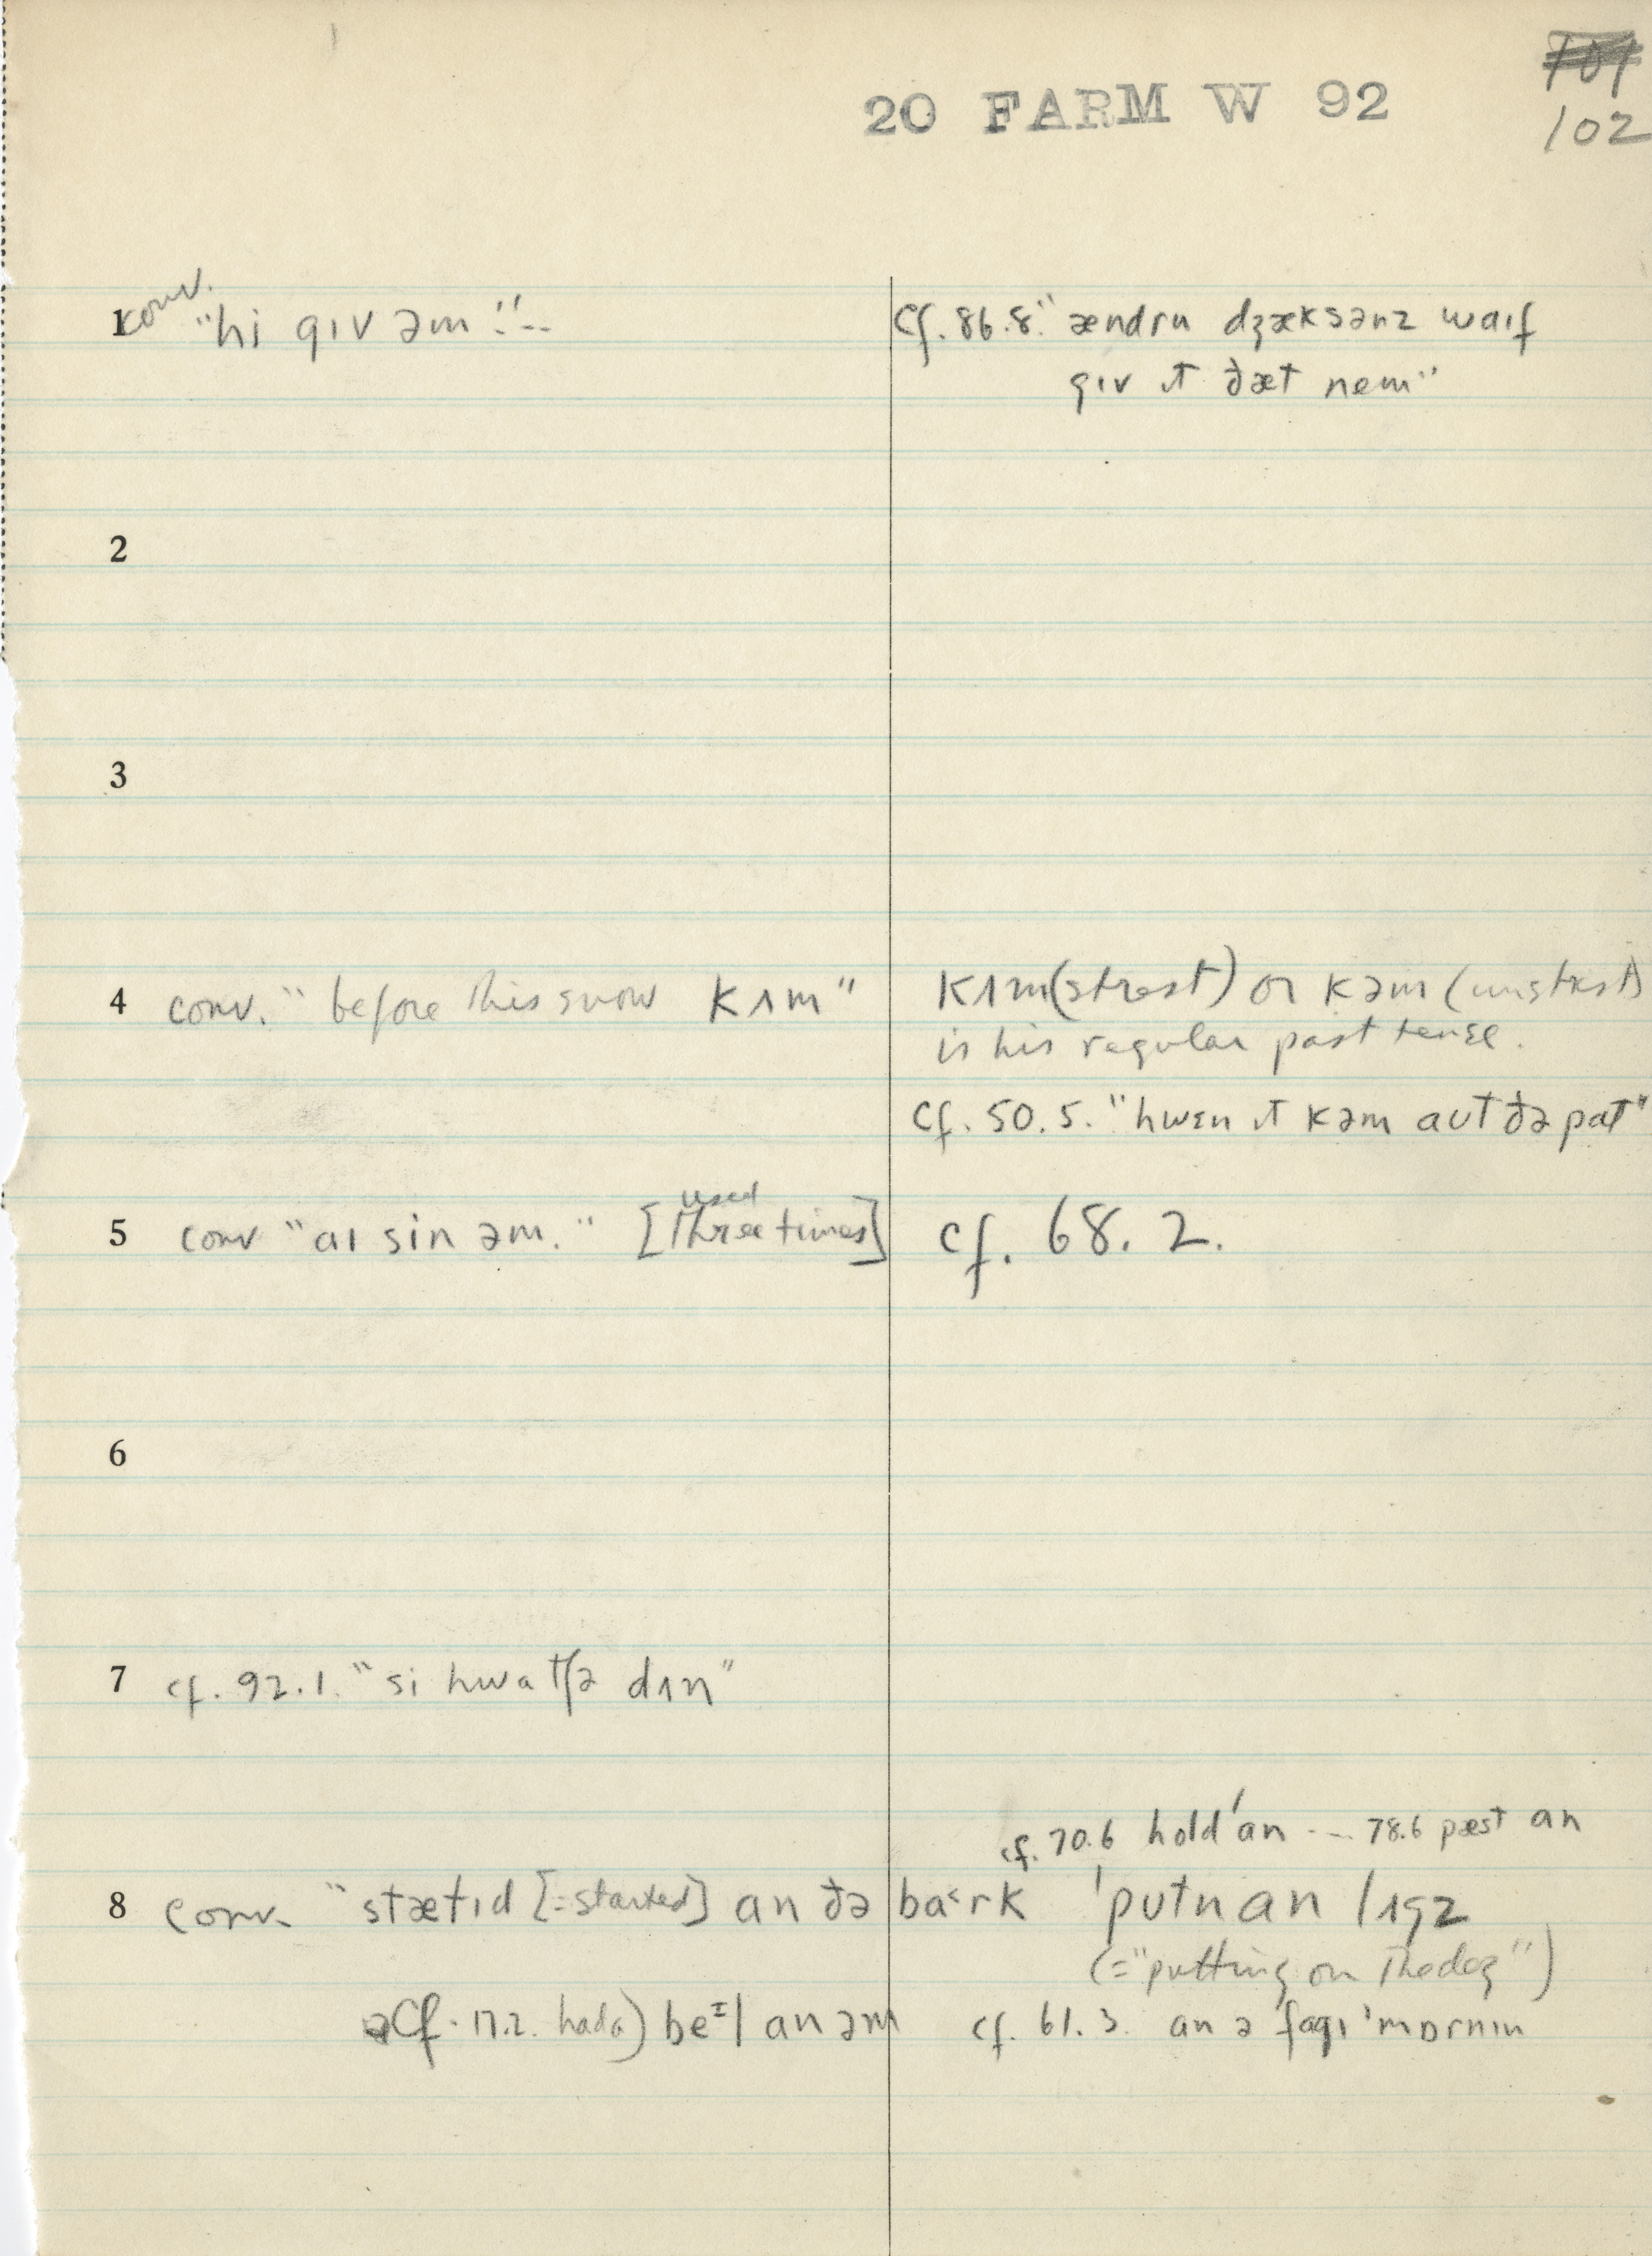 20 FARM W 92
102
1 conv. "hi gɪv əm."--
cf. 86.8. "ændru dʒæksənz waɪf
gɪv ɪt ðæt nem"
2
3
4 conv. "before this snow kʌm"
kʌm (strest) or kəm (unstrest)
is his regular past tense.
cf. 50.5. "hwɛn ɪt kəm aʊt ðə pɑt"
5 conv "aɪ sin əm." [used three times]
cf. 68.2.
6
7 cf. 92.1. "si hwɑtʃə dʌn"
cf. 70.6 hold'ɑn -- 78.6 pæst ɑn
8 conv. "stætɪd [=started] ɑn ðə ba˂rk
'putn ɑn
(="putting on the dog")
cf. 17.2. beᶦl ɑn əm
cf. 61.3. ɑn ə fɑgɪ 'mɒrnɪn